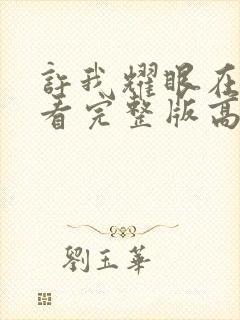 許我耀眼在
看完整版高
劉玉華